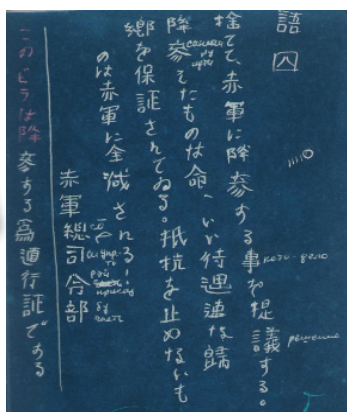 語囚
捨てて、赤軍に降参する事を提議する。
решение
降参したものは命、いい待遇連な歸
郷を保証されてゐる。抵抗を止めないも
のは赤軍に全減される!
赤軍總司令部
このビラは降参する為通行証である